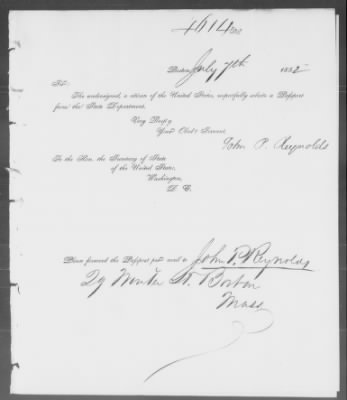 Boston, July 7th 1882
Sir:
The undersigned, a citizen of the United States, respectfully solicits a Passport
from the State Department.
Very Respt'y
Your Obd't Servant
John P. Reynolds
To the Hon. the Secretary of State
of the United States,
Washington,
D. C.
Please forward the Passport per mail to John P. Reynolds
29 Winter St. Boston
Mass